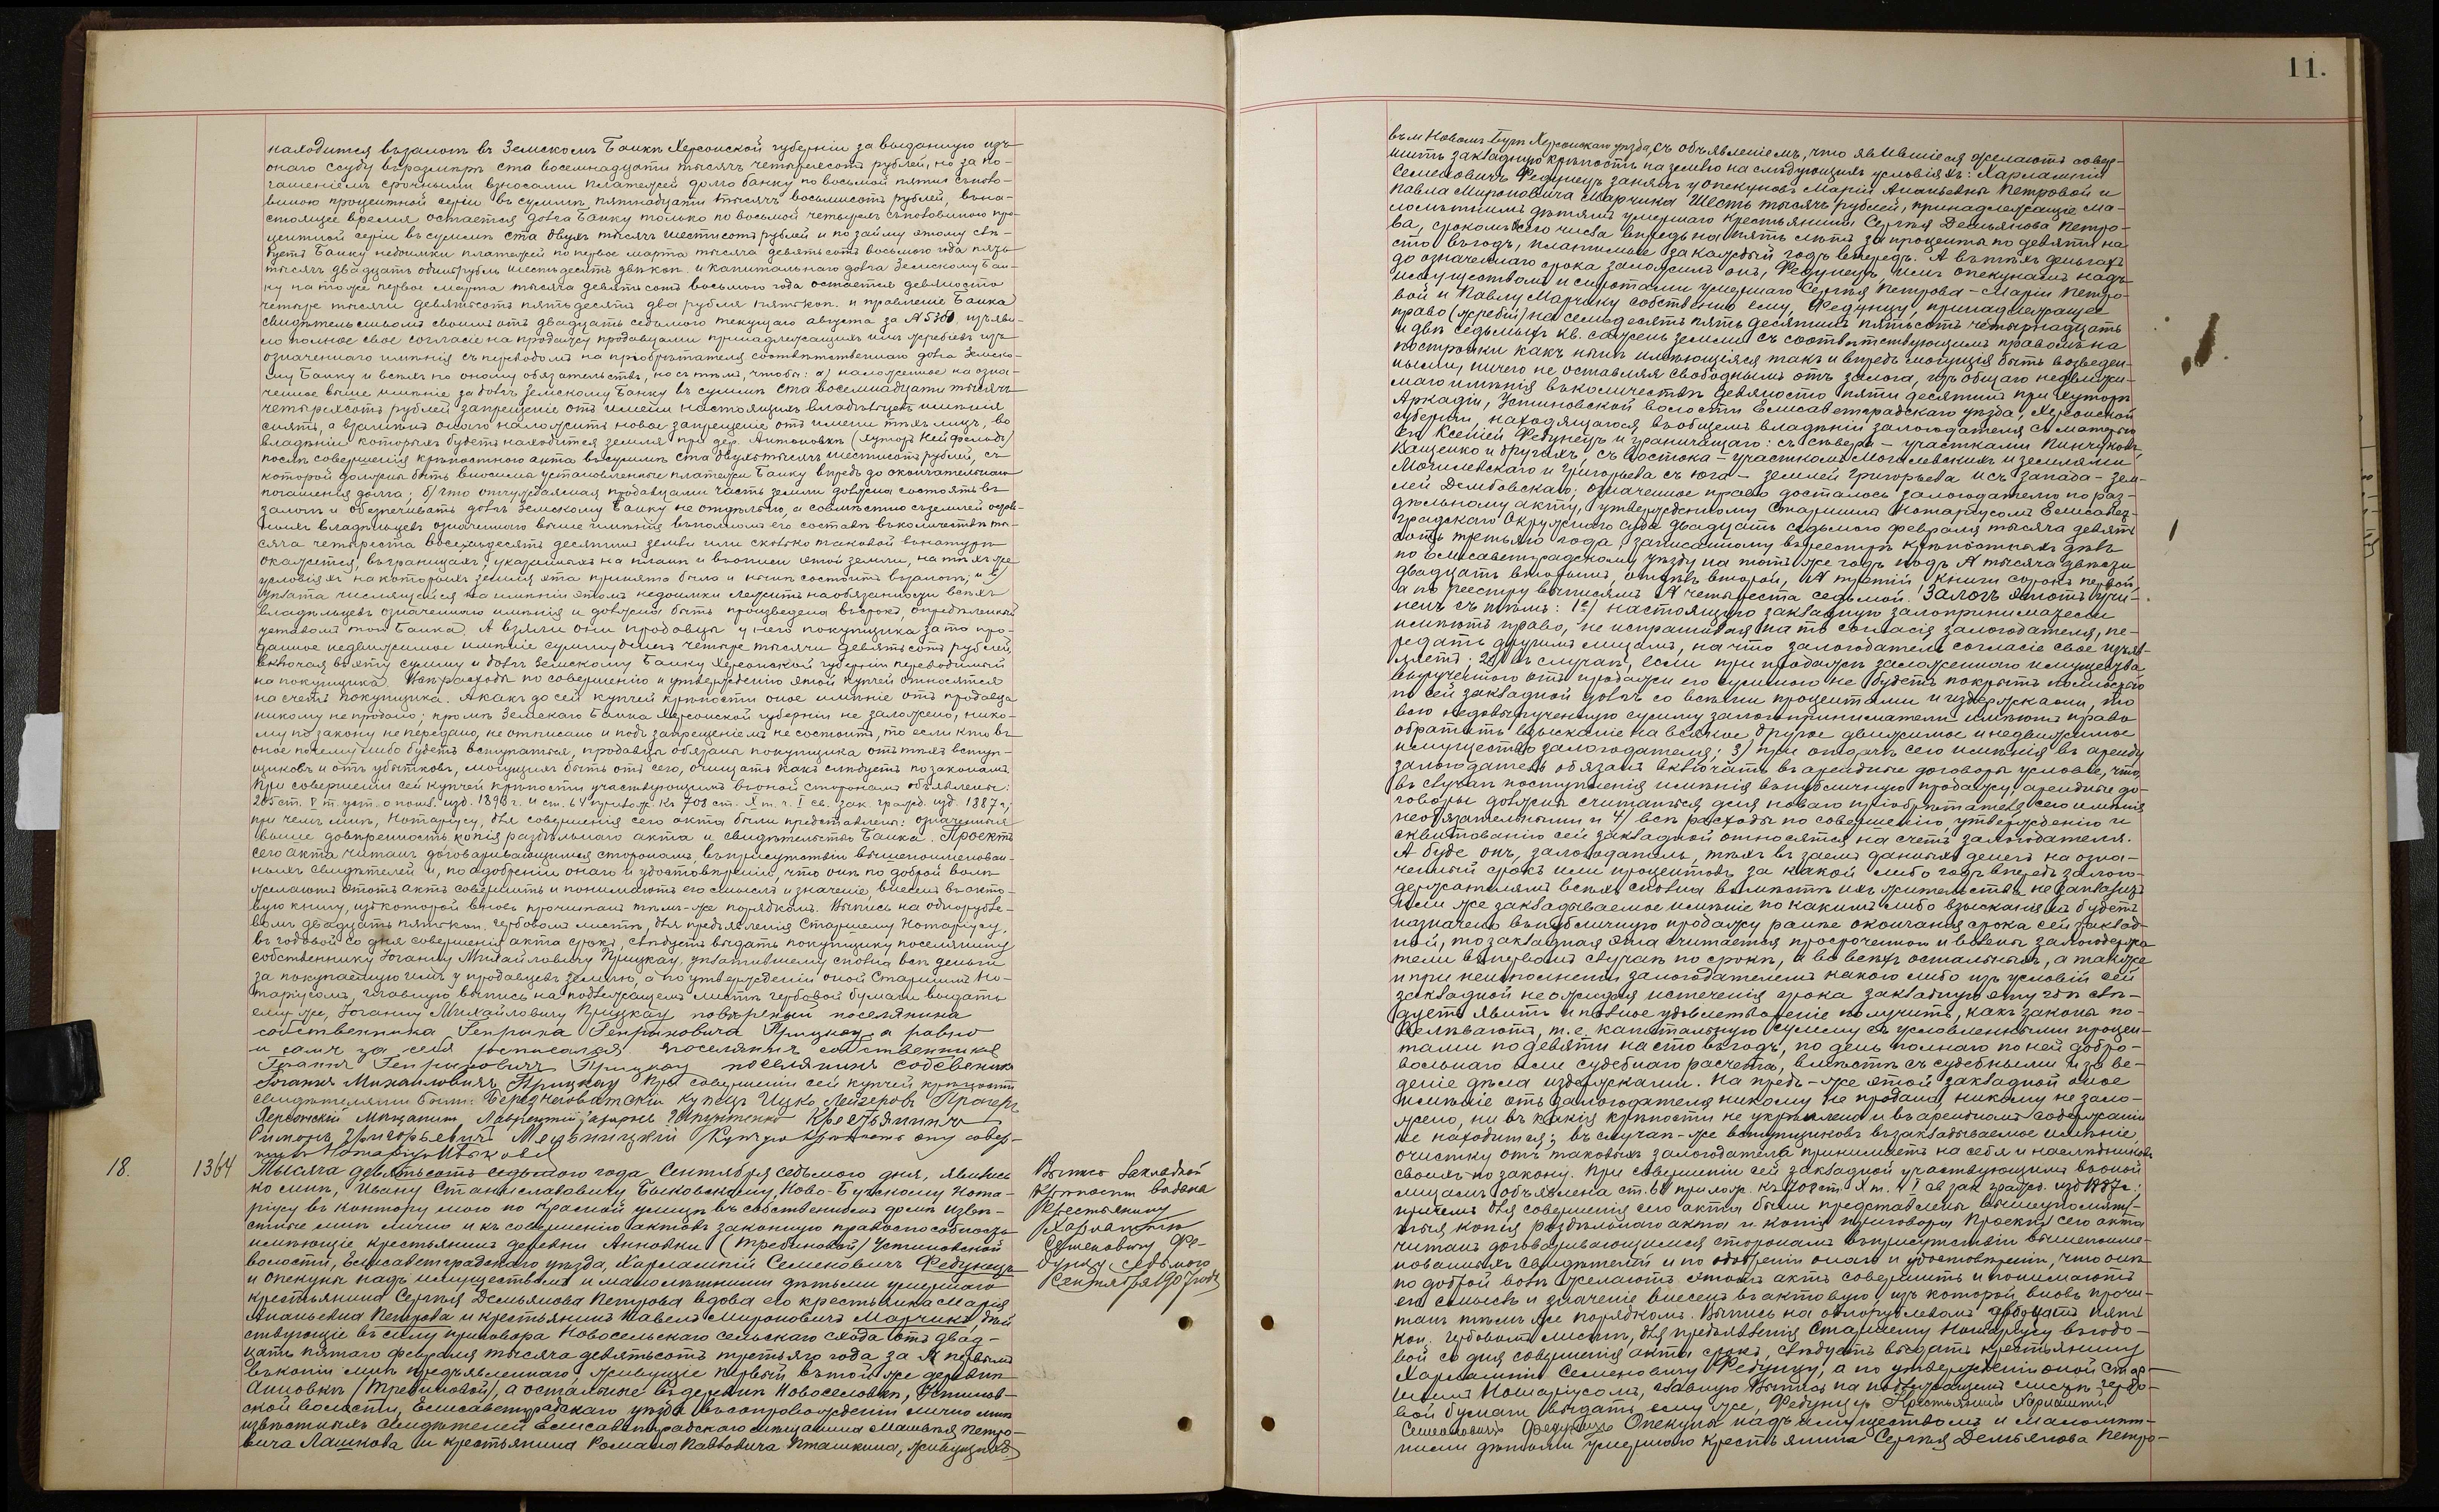 находится въ залогѣ въ Земскомъ Банкѣ Херсонской губерніи за выданную изъ
онаго ссуду въ размѣрѣ ста восемнадцати тысячъ четырехсотъ рублей, но за по-
гашеніемъ срочными взносами платежей долга банку по восьмой пяти съ поло-
виною процентной серіи въ суммѣ пятнадцати тысячъ восьмисотъ рублей, въ на-
стоящее время остается долга Банку только по восьмой четырехъ съ половиною про-
центной серіи въ суммѣ ста двухъ тысячъ шестисотъ рублей и по займу этому слѣ-
дуетъ Банку недоимки платежей по первое марта тысяча девятьсотъ восьмого года пять
тысячъ двадцать одинъ рубль шестьдесятъ двѣ коп. и капитальнаго долга Земскому Бан-
ку на тоже первое марта тысяча девятьсотъ восьмого года остается девяносто
четыре тысячи девятьсотъ пятьдесятъ два рубля пять коп. и правленіе Банка
свидѣтельствомъ своимъ отъ двадцать седьмого текущаго августа за № изъяви-
ло полное свое согласіе на продажу продавцами принадлежащихъ имъ жребіевъ изъ
означеннаго имѣнія съ переводомъ на пріобрѣтателя соотвѣтственнаго долга Земско-
му Банку и всѣхъ по оному обязательствъ, но съ тѣмъ, чтобы: а) наложенное на озна-
ченное выше имѣніе за долгъ Земскому Банку въ суммѣ ста восемнадцати тысячъ
четырехсотъ рублей запрещеніе отъ имени настоящихъ владѣльцевъ имѣнія
снять, а взамѣнъ онаго наложить новое запрещеніе отъ имени тѣхъ лицъ, во
владѣніи которыхъ будетъ находится земля при дер. Антоновкѣ (хуторъ Нейфельдъ)
послѣ совершенія крѣпостного акта въ суммѣ ста двухъ тысячъ шестисотъ рублей, съ
которой должны быть вносимы установленные платежи Банку впредь до окончательнаго
погашенія долга; б) что отчуждаемая продавцами часть земли должна состоять въ
залогѣ и обезпечивать долгъ Земскому Банку не отдѣльно, а совмѣстно съ землей
владѣльцевъ означеннаго выше имѣнія въ полномъ его составѣ въ количествѣ ты-
сяча четыреста восемьдесятъ десятинъ земли или сколько таковой въ натурѣ
окажется, въ границахъ, указанныхъ на планѣ и въ описи этой земли, на тѣхъ же
условіяхъ на которыхъ земля эта принята была и нынѣ состоитъ въ залогѣ; и в)
уплата числящейся на имѣніи этомъ недоимки лежитъ на обязанности всѣхъ
владѣльцевъ означеннаго имѣнія и должна быть произведена въ срокъ, опредѣленный
уставомъ того Банка. А взяли они продавцы у него покупщика за то про-
данное недвижимое имѣніе сумму денегъ четыре тысячи девятьсотъ рублей,
включая въ эту сумму и долгъ Земскому Банку Херсонской губерніи переводимый
на покупщика. Всѣ расходы по совершенію и утвержденію этой купчей относятся
на счетъ покупщика. А какъ до сей купчей крѣпости оное имѣніе отъ продавца
никому не продано; кромѣ Земскаго Банка Херсонской губерніи не заложено, нико-
му по закону не передано, не отписано и подъ запрещеніемъ не состоитъ, то если кто въ
оное почему либо будетъ вступаться, продавцы обязаны покупщика отъ тѣхъ вступ-
щиковъ и отъ убытковъ, могущихъ быть отъ сего, очищать какъ слѣдуетъ по законамъ.
При совершеніи сей купчей крѣпости участвующимъ въ оной сторонамъ объявлены:
205 ст. V т. уст. о пошл. изд. 1893 г. и ст. 64 прилож. къ 708 ст. X т. ч. I св. зак. гражд. изд. 1887 г.,
при чемъ мнѣ, Нотаріусу, для совершенія сего акта были представлены: означенныя
выше довѣренность, копія раздѣльнаго акта и свидѣтельство Банка. Проектъ
сего акта читанъ договаривающимся сторонамъ, въ присутствіи вышепоименован-
ныхъ свидѣтелей и, по одобреніи онаго и удостовѣреніи, что они по доброй волѣ
желаютъ этотъ актъ совершить и понимаютъ его смыслъ и значеніе, внесенъ въ акто-
вую книгу, изъ которой вновь прочитанъ тѣмъ-же порядкомъ. Выпись на однорубле-
вомъ двадцать пять коп. гербовомъ листѣ, для предъявленія Старшему Нотаріусу,
въ годовой со дня совершенія акта срокъ, слѣдуетъ выдать покупщику поселянину
собственнику Іоганну Михайловичу Прицкау, уплатившему сполна всѣ деньги
за покупаемую имъ у продавцевъ землю, а по утвержденіи оной Старшимъ Но-
таріусомъ, главную выпись на подлежащемъ листѣ гербовой бумаги выдать
ему же, Іоганну Михайловичу Прицкау. повѣренный поселянина
собственника Генриха Генриховича Прицкау, а равно
и самъ за себя росписался поселянинъ собственникъ
Генриховичъ Прицкау поселянинъ собственикъ
Іоганнъ Михайловичъ Прицкау При совершеніи сей купчей крѣпости
свидѣтелями были: Береznеговатскій купецъ Ицко Лейзеровъ
Херсонскій Мѣщанинъ Лаврентій Крестьянинъ
Симонъ Григорьевичъ Мельницкій Купчую крѣпость эту совер-
шилъ Нотаріусъ Быковскій
18. 1364 Тысяча девятьсотъ седьмого года Сентября седьмого дня, явились
ко мнѣ, Ивану Станиславовичу Быковскому, Ново-Бугскому Нота-
ріусу въ контору мою по Красной улицѣ въ собственномъ домѣ извѣ-
стные мнѣ лично и къ совершенію актовъ законную правоспособность
имѣющіе крестьянинъ деревни Анновки (Требиновой) Устиновской
волости, Елисаветградскаго уѣзда, Харлампій Семеновичъ Федунецъ
и опекуны надъ имуществомъ и малолѣтними дѣтьми умершаго
крестьянина Сергѣя Демьянова Петрова вдова его крестьянка Марія
Ананьевна Петрова и крестьянинъ Павелъ Мироновичъ Марчикъ, дѣй
ствующіе въ силу приговора Новосельскаго сельскаго схода отъ двад-
цать пятаго февраля тысяча девятьсотъ третьяго года за № первымъ
въ копіи мнѣ предъявленнаго, живущіе первый въ той же деревнѣ
Анновкѣ (Требиновой), а остальные въ деревнѣ Новоселовкѣ, Устинов-
ской волости, Елисаветградскаго уѣзда въ сопровожденіи лично мнѣ
извѣстныхъ свидѣтелей Елисаветградскаго мѣщанина Матвѣя Петро-
вича Лашкова и крестьянина Романа Павловича Пташкина, живущихъ
Выпись Закладной
крѣпости выдана
Крестьянину
Харлампію
Семеновичу Фе-
дунцу седьмого
Сентября 1907 года
11.
въ м. Новомъ Бугѣ Херсонскаго уѣзда, съ объявленіемъ, что явившіеся желаютъ совер-
шить закладную крѣпость на землю на слѣдующихъ условіяхъ: Харлампій
Семеновичъ Федунецъ занялъ у опекуновъ Маріи Ананьевны Петровой и
Павла Мироновича Марчика шесть тысячъ рублей, принадлежащіе ма-
лолѣтнимъ дѣтямъ умершаго крестьянина Сергѣя Демьянова Петро-
ва, срокомъ сего числа впредь на пять лѣтъ за проценты по девяти на
сто въ годъ, платимые за каждый годъ впередъ. А въ тѣхъ деньгахъ
до означеннаго срока заложилъ онъ, Федунецъ, имъ опекунамъ надъ
имуществомъ и сиротами умершаго Сергѣя Петрова – Маріи Петро-
вой и Павлу Марчику собственно ему, Федунцу, принадлежащее
право (жребій) на семьдесятъ пять десятинъ пятьсотъ четырнадцать
и двѣ седьмыхъ кв. сажень земли съ соотвѣтствующимъ правомъ на
постройки какъ нынѣ имѣющіяся такъ и впредь могущія быть возведен-
ными, ничего не оставляя свободнымъ отъ залога, изъ общаго недвижи-
маго имѣнія въ количествѣ девяносто пяти десятинъ при хуторѣ
Аркадіи, Устиновской волости Елисаветградскаго уѣзда, Херсонской
губерніи, находящагося въ общемъ владѣніи залогодателя съ матерью
его Ксеніей Федунецъ и граничащаго: съ сѣвера – участками Пинчукова,
Кащенко и другихъ, съ востока – участкомъ Могилевскихъ и землями
Могилевскаго и Григорьева съ юга – землей Григорьева и съ запада – зем-
лей Дембовскаго; означенное право досталось залогодателю по раз-
дѣльному акту, утвержденному Старшимъ Нотаріусомъ Елисавет-
градскаго Окружнаго Суда двадцать седьмого февраля тысяча девять
сотъ третьяго года, записанному въ реестръ крѣпостныхъ дѣлъ
по Елисаветградскому уѣзду на тотъ же годъ подъ № тысяча двѣсти
двадцать вторымъ, отдѣлъ второй, № третій, книги сорокъ первой,
а по реестру выписямъ № четыреста седьмой. Залогъ этотъ учи-
ненъ съ тѣмъ: 1е) настоящую закладную залогоприниматели
имѣютъ право, не испрашивая на то согласія залогодателя, пе-
редать другимъ лицамъ, на что залогодатель согласіе свое изъяв-
ляетъ; 2е) въ случаѣ, если при продажѣ заложеннаго имущества
вырученною отъ продажи его суммою не будетъ покрытъ полностью
по сей закладной долгъ со всѣми процентами и издержками, то
всю недовырученную сумму залогоприниматели имѣютъ право
обратить взысканіе на всякое другое движимое и недвижимое
имущество залогодателя; 3) при отдачѣ сего имѣнія въ аренду
залогодатель обязанъ включать въ арендные договоры условіе, что
въ случаѣ поступленія имѣнія въ публичную продажу, арендные до-
говоры должны считаться для новаго пріобрѣтателя сего имѣнія
необязательными и 4) всѣ расходы по совершенію, утвержденію и
сквитованію сей закладной относятся на счетъ залогодателя.
А буде онъ, залогодатель, тѣхъ въ заемъ данныхъ денегъ на озна-
ченный срокъ или процентовъ за какой либо годъ впередъ залого-
держателямъ всѣхъ сполна въ мѣстѣ ихъ жительства не заплатитъ
или же закладываемое имѣніе по какимъ либо взысканіямъ будетъ
назначено въ публичную продажу ранѣе окончанія срока сей заклад-
ной, то закладная эта считается просроченною и вольны залогодержа-
тели въ первомъ случаѣ по срокѣ, а во всѣхъ остальныхъ, а также
и при неисполненіи залогодателемъ какого либо изъ условій сей
закладной не ожидая истеченія срока закладную эту гдѣ слѣ-
дуетъ явить и полное удовлетвореніе получить, какъ законы по-
велѣваютъ, т. е. капитальную сумму съ условленными процен-
тами по девяти на сто въ годъ, по день полнаго по ней добро-
вольнаго или судебнаго расчета, вмѣстѣ съ судебными и за ве-
деніе дѣла издержками. На предь-же этой закладной оное
имѣніе отъ залогодателя никому не продано, никому не зало-
жено, ни въ какія крѣпости не укрѣплено и въ арендномъ содержаніи
не находится; въ случаѣ-же вступщиковъ въ закладываемое имѣніе,
очистку отъ таковыхъ залогодатель принимаетъ на себя и наслѣдниковъ
своихъ по закону. При совершеніи сей закладной участвующимъ въ оной
лицамъ объявлена ст. 64 прилож. къ 708 ст. X т. ч. I св. зак. гражд. изд. 1887 г.;
причемъ для совершенія сего акта были представлены вышеупомяну-
тыя копія раздѣльнаго акта и копія приговора. Проектъ сего акта
читанъ договаривающимся сторонамъ въ присутствіи вышепоиме-
нованныхъ свидѣтелей и по одобреніи онаго и удостовѣреніи, что они
по доброй волѣ желаютъ этотъ актъ совершить и понимаютъ
его смыслъ и значеніе внесенъ въ актовую, изъ которой вновь прочи-
танъ тѣмъ же порядкомъ. Выпись на однорублевомъ двадцать пять
коп. гербовомъ листѣ, для предъявленія Старшему Нотаріусу въ годо-
вой со дня совершенія акта срокъ, слѣдуетъ выдать крестьянину
Харлампію Семеновичу Федунцу, а по утвержденіи оной Стар-
шимъ Нотаріусомъ, главную выпись на подлежащемъ листѣ гербо-
вой бумаги выдать ему же, Федунцу. Крестьянинъ Харлампій
Семеновичъ Федунецъ Опекуны надъ имуществомъ и малолѣт-
ними дѣтьми умершаго крестьянина Сергѣя Демьянова Петро-